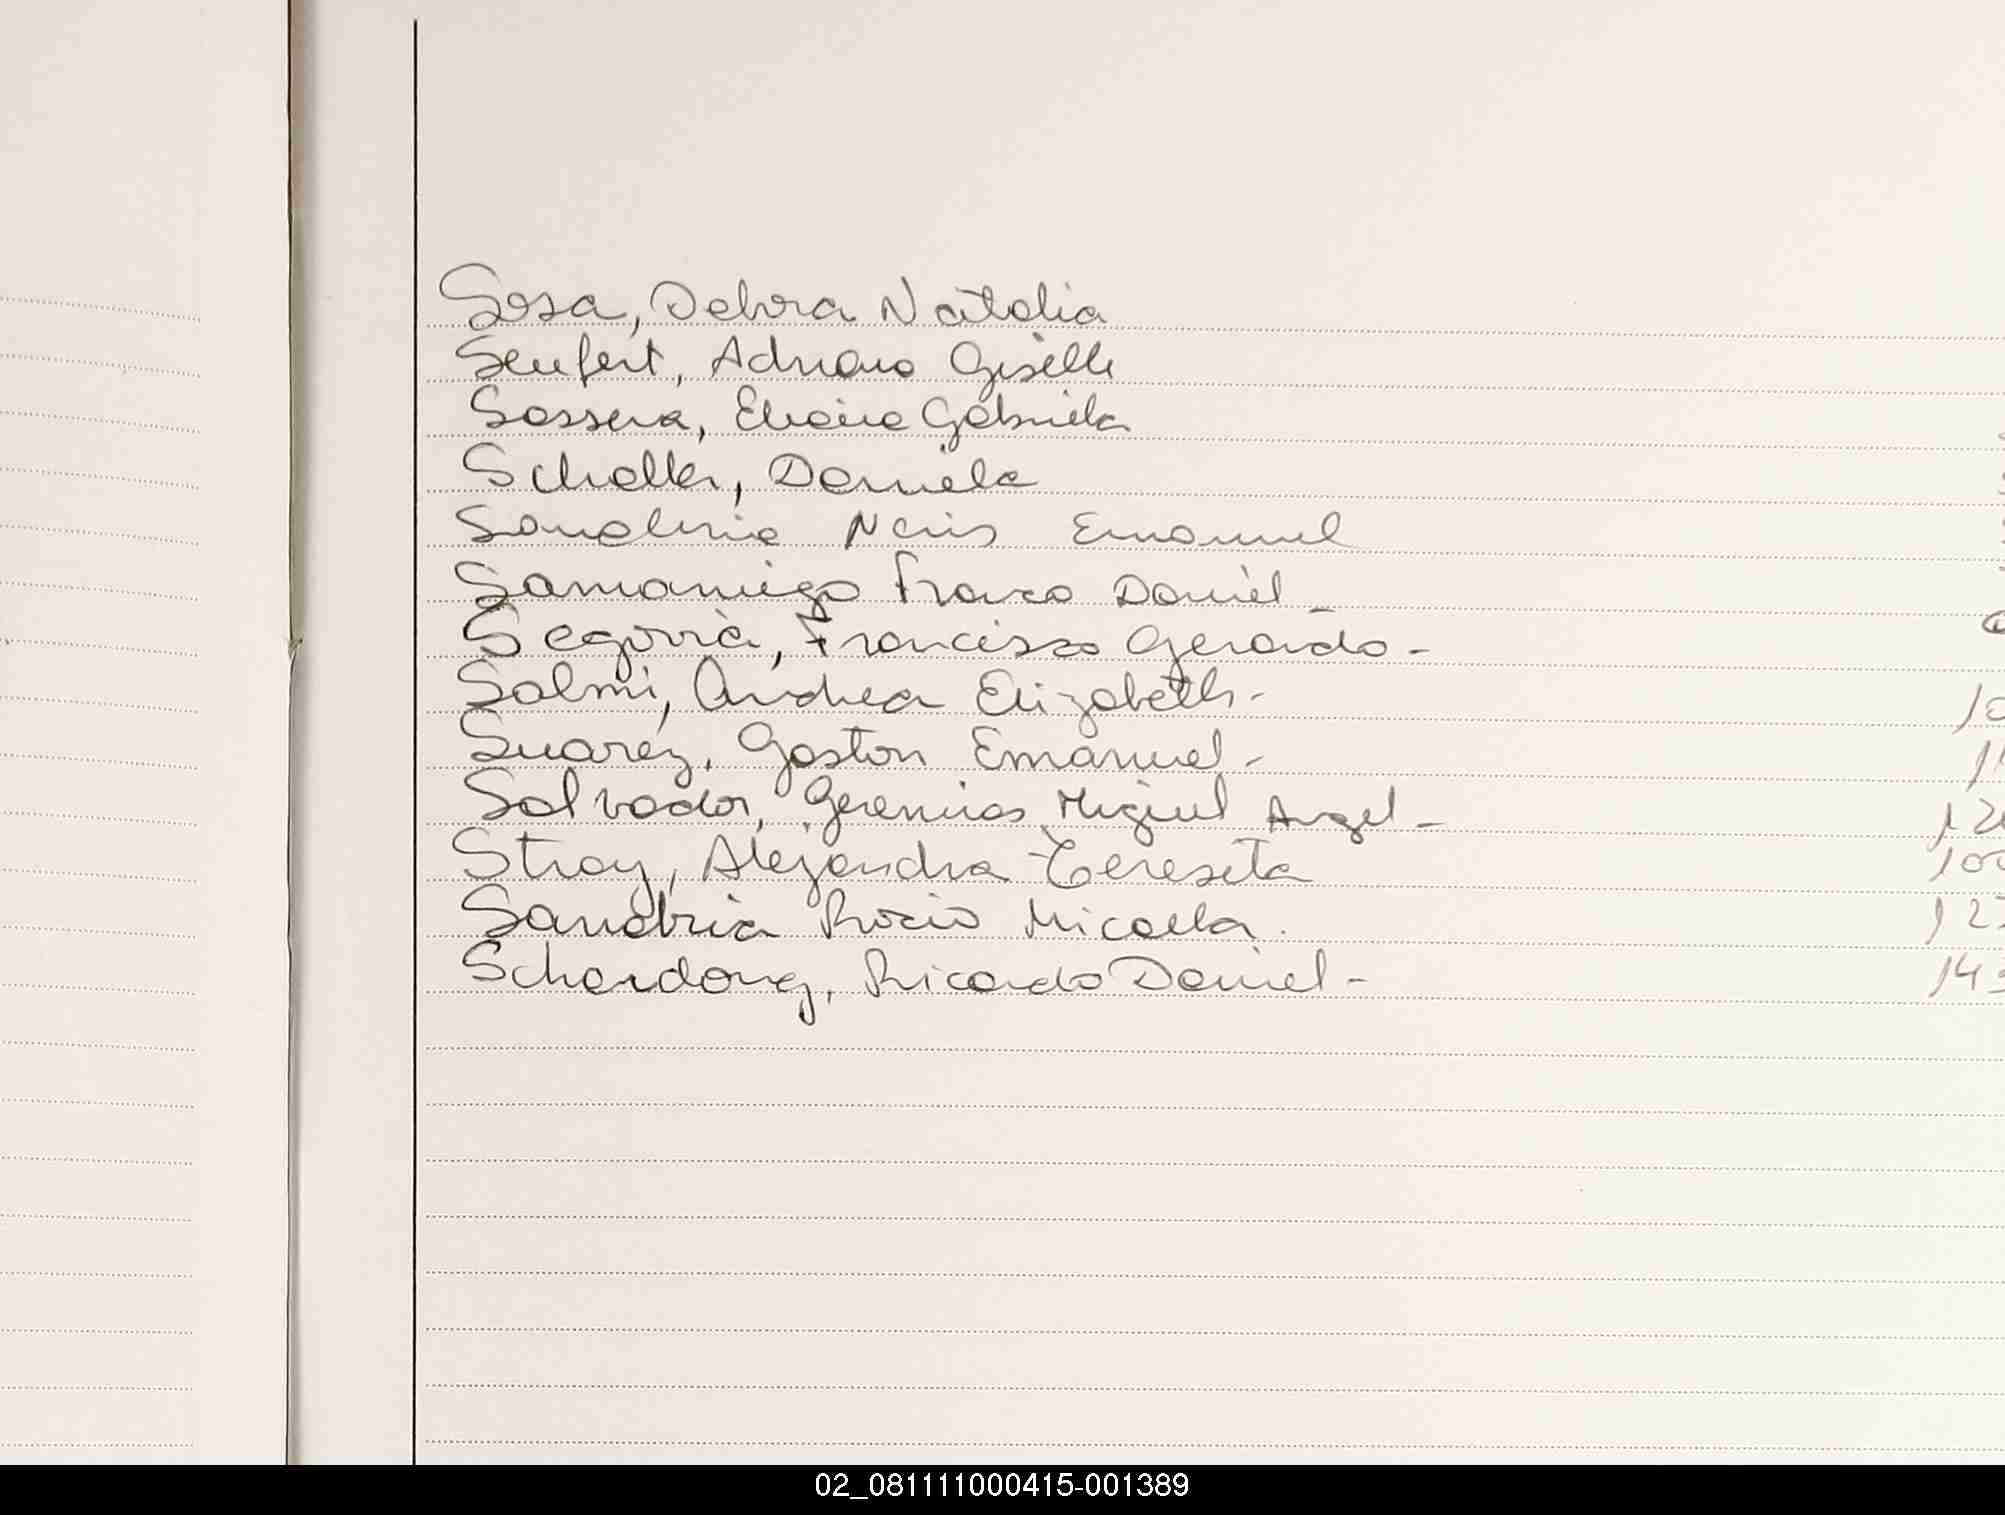 Sosa, Debora Natalia
Seufert, Adriana Giselle
Sossera, Eliana Gabriela
Scheller, Daniela
Sanabria Neris Emanuel
Samaniego Franco Daniel -
Segovia, Francisco Gerardo -
Salmi, Andrea Elizabeth -
Suarez, Gaston Emanuel -
Salvador, Geremias Miguel Angel -
Stray, Alejandra Teresita
Sanabria Rocio Micaela.
Scherdong, Ricardo Daniel -
02_081111000415-001389